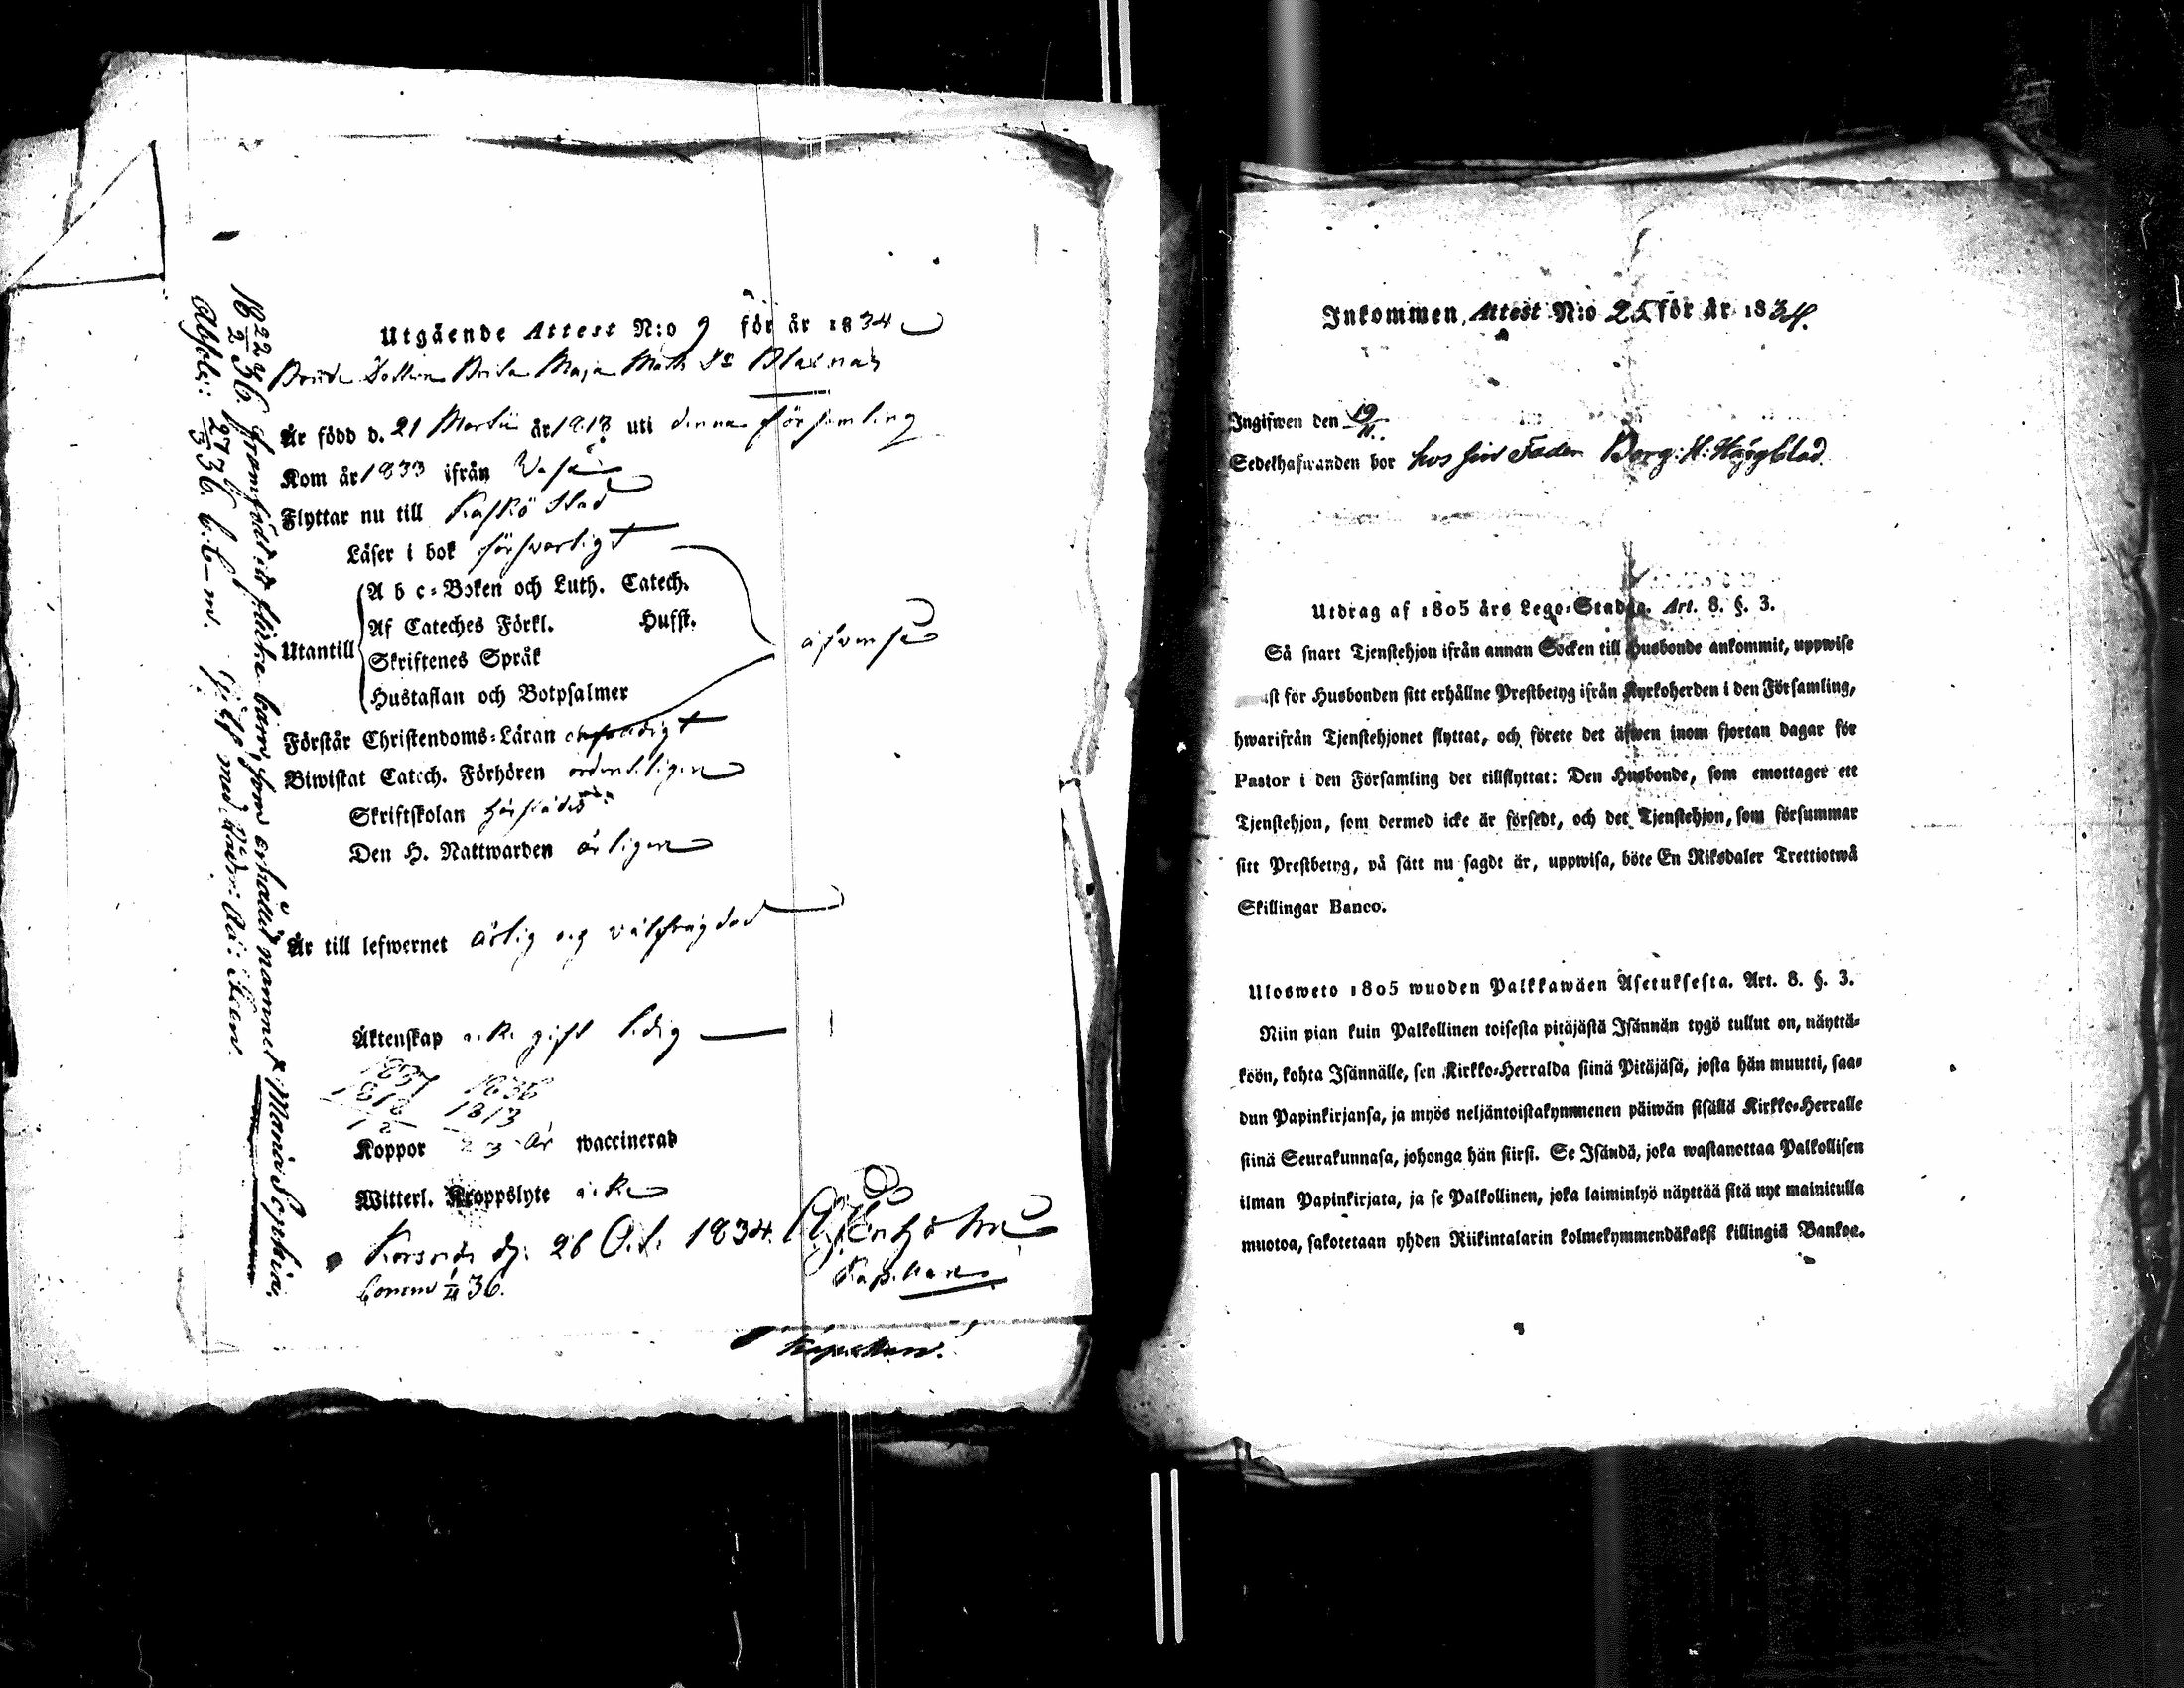 Utgående Attest N:o 9 för år 1834
Bonde Dottren Brita Maja Matts Dr
Är född d. 21 Martii år 1813 uti denna församling
Kom år 1833 ifrån Vasa
Flyttar nu till Kaskö Stad
Läser i bok försvarligt
A b c=Boken och Luth. Catech.
Af Cateches Förkl. Husst.
Utantill
Skriftenes Språk
Hustaflan och Botpsalmer
äfvenså
Förstår Christendoms=Läran
Biwistat Catech. Förhören ordentligen
Skriftskolan härstädes
Den H. Nattwarden årligen
Är till lefwernet ärlig och välfrägdad
Äktenskap icke gift ledig
1836
1818 1813
Koppor 23 år waccinerad
Witterl. Kroppslyte icke
Korsnäs d. 26 Oct. 1834.
Kapellan
Comm 1/11 36.
Kapellan.
18 22/2 36. framfödt ett flicke barn, som erhållit namnet Maria Sophia.
Absol: 27/3 36.
Inkommen Attest N:o 25 för år 1834.
Ingifwen den 19/11.
Sedelhafwanden bor hos sin Fader Borg: H: Häggblad.
Utdrag af 1805 års Lego=Stadga. Art. 8. §. 3.
Så snart Tjenstehjon ifrån annan Socken till Husbonde ankommit, uppwise
först för Husbonden sitt erhållne Prestbetyg ifrån Kyrkoherden i den Församling,
hwarifrån Tjenstehjonet flyttat, och förete det äfwen inom fjortan dagar för
Pastor i den Församling det tillflyttat: Den Husbonde, som emottager ett
Tjenstehjon, som dermed icke är försedt, och det Tjenstehjon, som försummar
sitt Prestbetyg, på sätt nu sagdt är, uppwisa, böte En Riksdaler Trettiotwå
Skillingar Banco.
Ulosweto 1805 wuoden Palkkawäen Asetuksesta. Art. 8. §. 3.
Niin pian kuin Palkollinen toisesta pitäjästä Isännän tygö tullut on, näyttä=
köön, kohta Isännälle, sen Kirkko=Herralda siinä Pitäjäsä, josta hän muutti, saa=
dun Papinkirjansa, ja myös neljäntoistakymmenen päiwän sisällä Kirkko=Herralle
siinä Seurakunnasa, johonga hän siirsi. Se Isändä, joka wastanottaa Palkollisen
ilman Papinkirjata, ja se Palkollinen, joka laiminlyö näyttää sitä nyt mainitulla
muotoa, sakotetaan yhden Riikintalarin kolmekymmendäkaksi killingiä Bankoa.